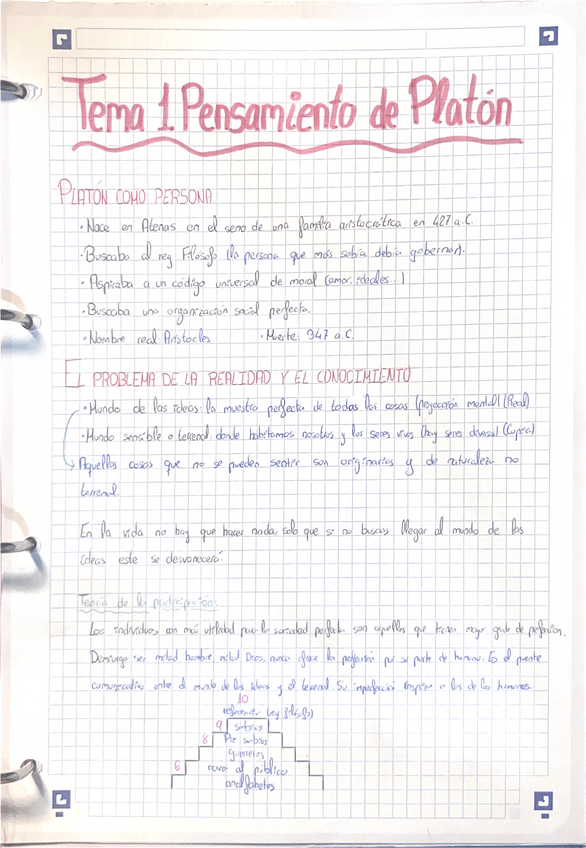 Tema 1 Pensamiento de Platón
PLATÓN COMO PERSONA
· Nace en Atenas en el seno de una familia aristocrática en 427 a.C.
· Buscaba al rey Filósofo (la persona que más sabía debía gobernar).
· Aspiraba a un código universal de moral (amor, ideales...)
· Buscaba una organización social perfecta.
· Nombre real Aristocles · Muerte: 347 a.C.
EL PROBLEMA DE LA REALIDAD Y EL CONOCIMIENTO
· Mundo de las ideas: la muestra perfecta de todas las cosas (proyección mental) (Real)
· Mundo sensible o terrenal donde habitamos nosotros y los seres vivos (hay seres diversos) (Copia)
→ Aquellas cosas que no se pueden sentir son originarias y de naturaleza no
terrenal.
En la vida no hay que hacer nada, solo que si no buscas llegar al mundo de las
ideas este se desvanecerá.
Teoría de la participación:
Los individuos con más utilidad para la sociedad perfecta son aquellos que tienen mayor grado de perfección.
Demiurgo ser mitad hombre, mitad Dios, nunca la perfección por su parte de humano. Es el puente
comunicativo entre el mundo de las ideas y el terrenal. Su imperfección inspira a los de los humanos
10
rey filósofo)
9 sabios
8 Pre sabios
guerreros
6 al público
analfabetos